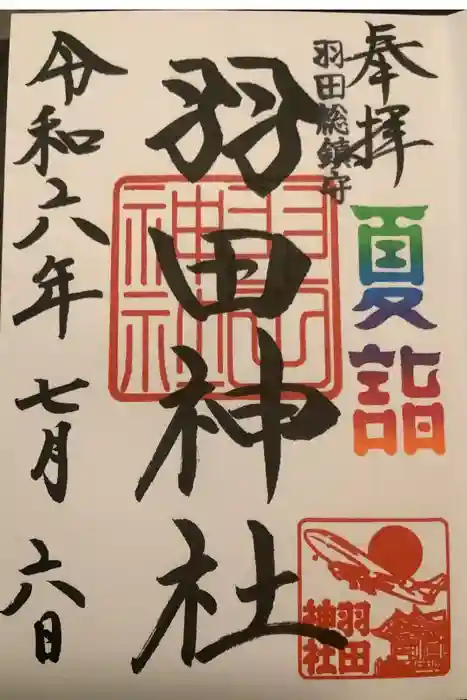 奉拝
夏詣
羽田総鎮守
羽田神社
羽田神社
羽田
神社
令和六年七月六日